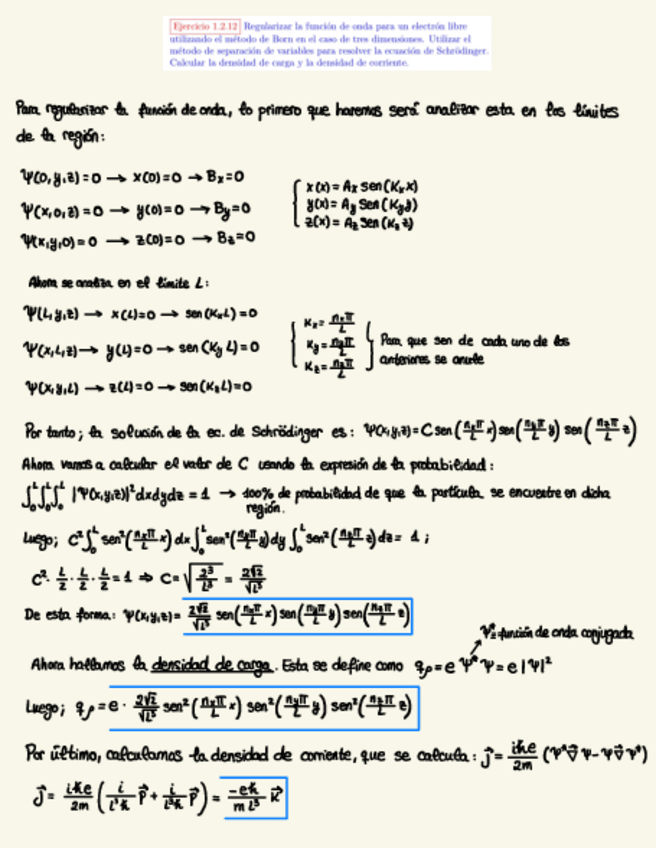 Ejercicio 1.2.12 Regularizar la función de onda para un electrón libre
utilizando el método de Born en el caso de tres dimensiones. Utilizar el
método de separación de variables para resolver la ecuación de Schrödinger.
Calcular la densidad de carga y la densidad de corriente.
Para regularizar la función de onda, lo primero que haremos será analizar esta en los límites
de la región:
Ψ(0,y,z)=0 → x(0)=0 → Bx=0
Ψ(x,0,z)=0 → y(0)=0 → By=0
Ψ(x,y,0)=0 → z(0)=0 → Bz=0
{ x(x)= Ax sen(Kx x)
y(x)= Ay sen(Ky y)
z(x)= Az sen(Kz z)
Ahora se analiza en el límite L:
Ψ(L,y,z) → x(L)=0 → sen(KxL)=0
Ψ(x,L,z) → y(L)=0 → sen(Ky L)=0
Ψ(x,y,L) → z(L)=0 → sen(KzL)=0
{ Kx= nxπ/L
Ky= nyπ/L
Kz= nzπ/L }
Para que sen de cada uno de los
anteriores se anule
Por tanto; la solución de la ec. de Schrödinger es: Ψ(x,y,z)= C sen(nxπ/L x) sen(nyπ/L y) sen(nzπ/L z)
Ahora vamos a calcular el valor de C usando la expresión de la probabilidad:
∫₀ᴸ∫₀ᴸ∫₀ᴸ |Ψ(x,y,z)|² dxdydz = 1 → 100% de probabilidad de que la partícula se encuestre en dicha
región.
Luego; C²∫₀ᴸ sen²(nxπ/L x) dx ∫₀ᴸ sen²(nyπ/L y) dy ∫₀ᴸ sen²(nzπ/L z) dz = 1 ;
C² · L/2 · L/2 · L/2 = 1 ⇒ C = √(2³/L³) = 2√2/√L³
De esta forma: Ψ(x,y,z)= 2√2/√L³ sen(nxπ/L x) sen(nyπ/L y) sen(nzπ/L z)
Ψ*=función de onda conjugada
Ahora hallamos la densidad de carga. Esta se define como qρ = e Ψ*Ψ = e|Ψ|²
Luego; qρ = e · 2√2/√L³ sen²(nxπ/L x) sen²(nyπ/L y) sen²(nzπ/L z)
Por último, calculamos la densidad de corriente, que se calcula: j⃗ = iℏe/2m (Ψ*∇⃗Ψ − Ψ∇⃗Ψ*)
J⃗ = iℏe/2m (i/L³ℏ P⃗ + i/L³ℏ P⃗) = −eℏ/mL³ K⃗